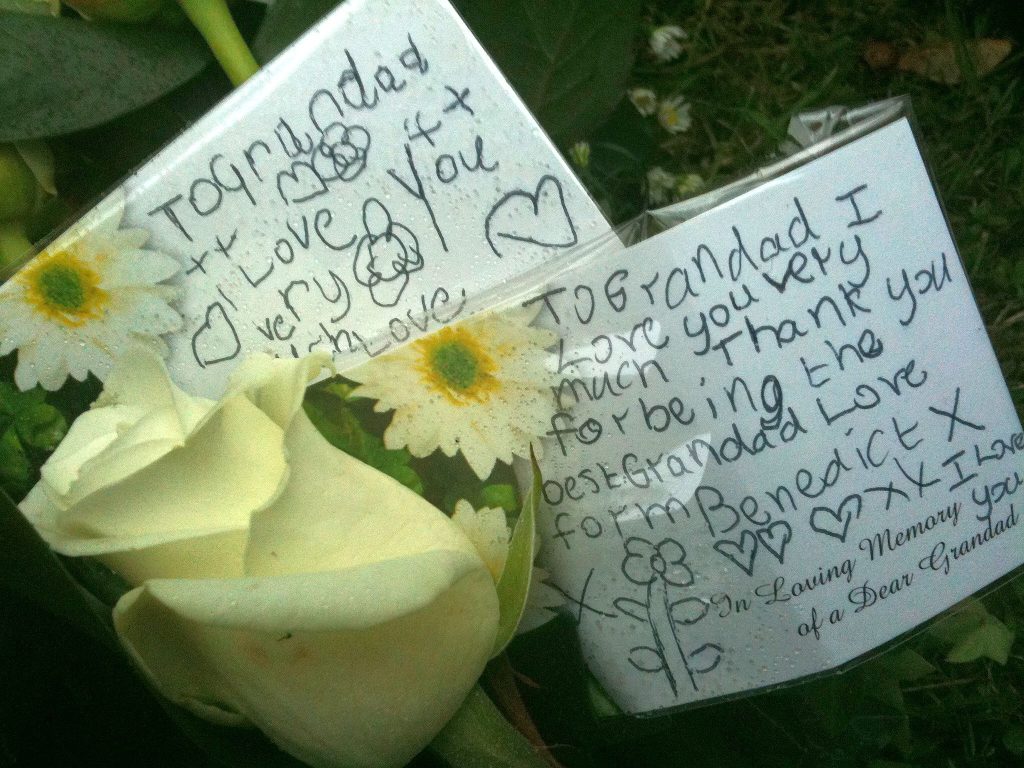 TO Grandad
xx xx
I Love You
very
Love
TO Grandad I
Love you very
much Thank you
for being the
best Grandad Love
form Benedict X
XX I Love
you
X
In Loving Memory
of a Dear Grandad